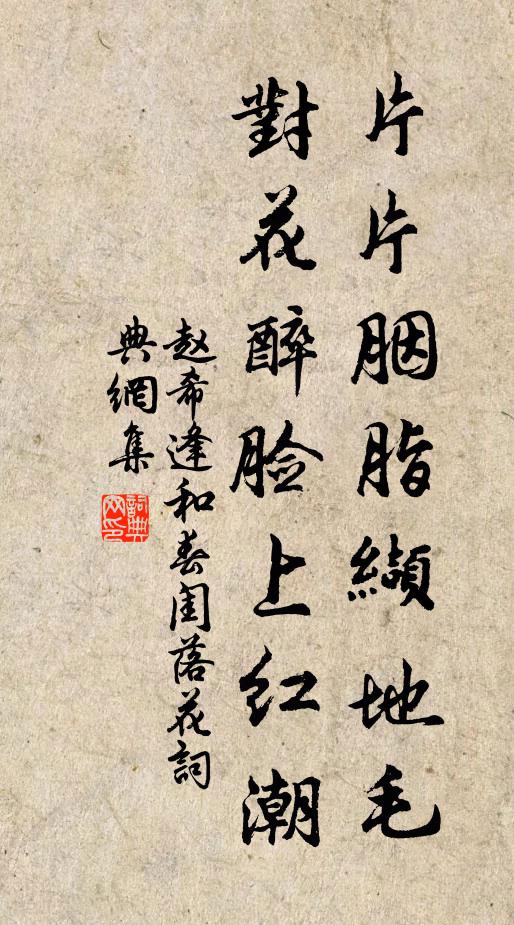 片片胭脂纈地毛
對花醉脸上红潮
赵希逢和春闺落花詞
典網集
詞典网印